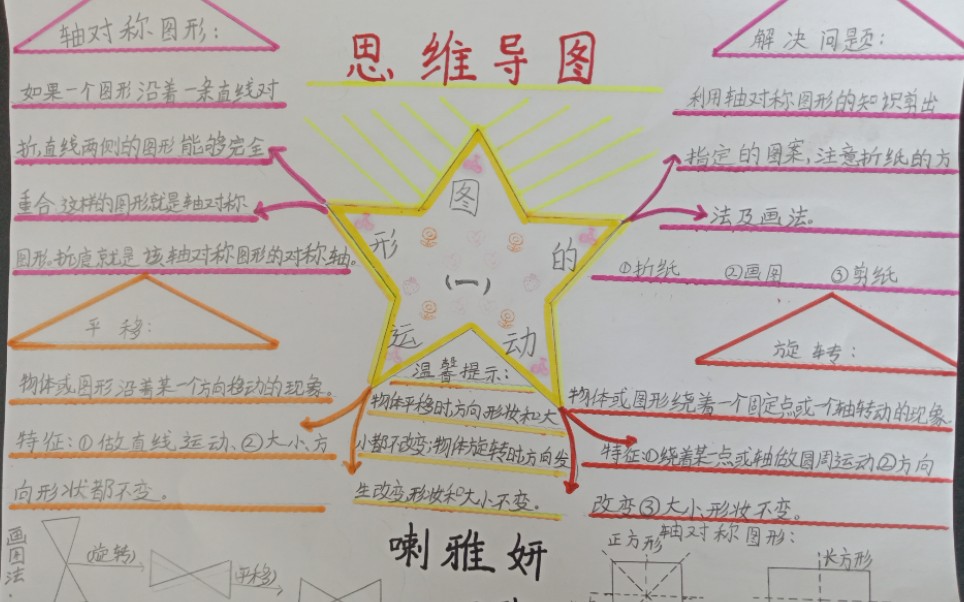 思维导图
轴对称图形：
如果一个图形沿着一条直线对
折,直线两侧的图形能够完全
重合,这样的图形就是轴对称
图形。折痕就是该轴对称图形的对称轴。
解决问题：
利用轴对称图形的知识剪出
指定的图案，注意折纸的方
法及画法。
①折纸 ②画图 ③剪纸
图形的运动
（一）
平移：
物体或图形沿着某一个方向移动的现象。
特征：①做直线运动、②大小、方
向形状都不变。
温馨提示：
物体平移时方向形妆和大
小都不改变；物体旋转时方向发
生改变,形妆和大小不变。
旋转：
物体或图形绕着一个固定点或一个轴转动的现象
特征：①绕着某一点或轴做圆周运动②方向
改变③大小、形妆不变。
画图法：
(旋转)
(平移)
喇雅妍
轴对称图形：
正方形
长方形